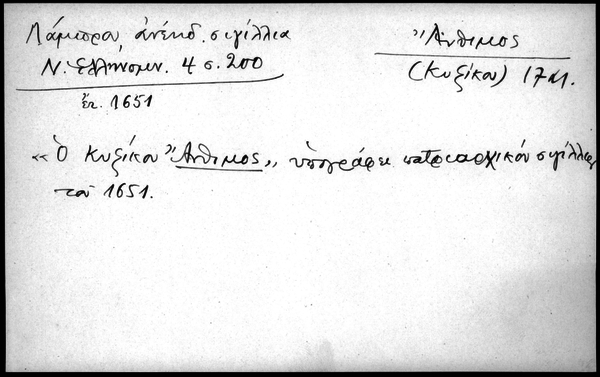 Λάμπρου, ἀνέκδ. σιγίλλια
Ν. Ἑλληνομν. 4 σ. 200
ἔτ. 1651
Ἄνθιμος
(Κυζίκου) 17 αι.
«Ὁ Κυζίκου Ἄνθιμος„ ὑπογράφει πατριαρχικόν σιγίλλιον
τοῦ 1651.